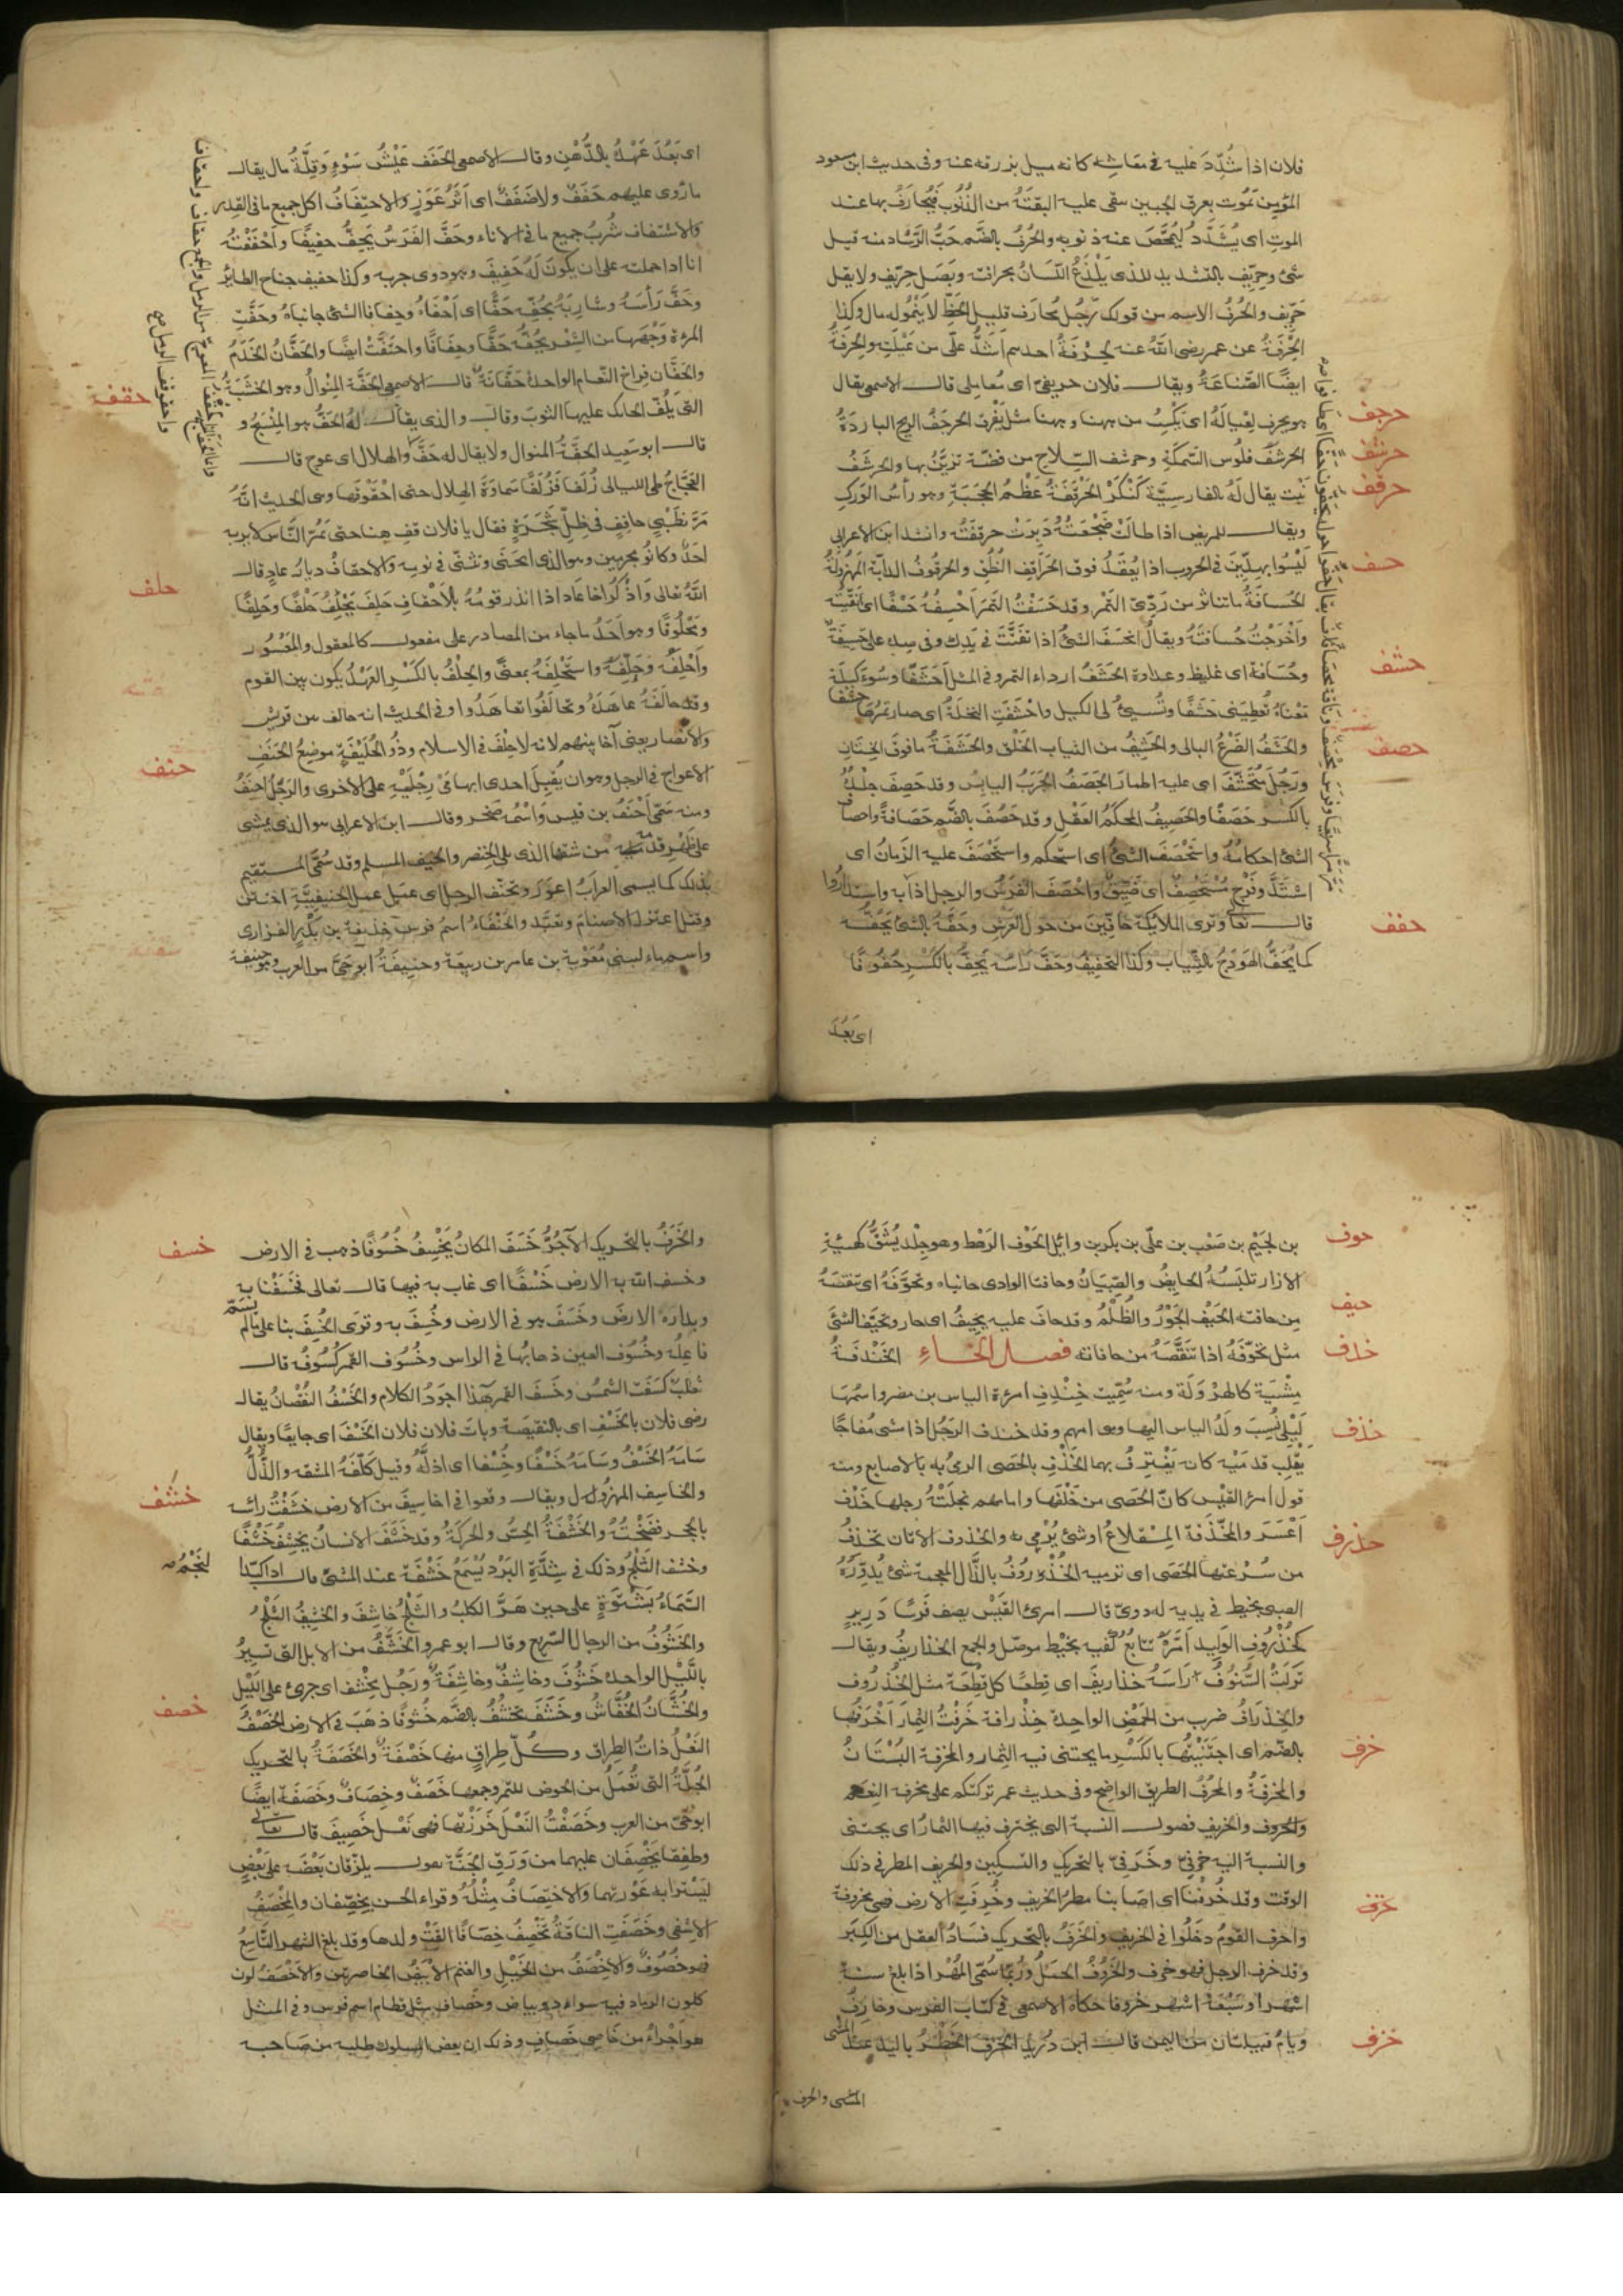 فلان اذا شُدِّدَ عليه فى معاشه كانه ميل برزقه عنه وفى حديث ابن مسعود
المؤمن يموت بعرق الجبين تبقى عليه البقيّة من الذنوب فيُحارَفُ بها عند
الموت اى يُشَدَّدُ ليُمَحَّصَ عنه ذنوبه والحُرْفُ بالضّم حَبُّ الرَّشاد منه قيل
شئ وحِرِّيف بالتشديد للذى يَلْذَعُ اللسانُ بحرافته وبَصَل حِرّيف ولا يقل
حَرّيف والحُرْفُ الاسم من قولك رَجُل مُحارَف قليل الحَظّ لا يَنْمُو له مال وكذا
الحِرْفَةُ عن عمر رضى الله عنه لحِرْفَةُ احدهم اَشَدُّ علَىّ من عَيْلَتِه والحِرْفَةُ
ايضًا الصّناعَةُ ويقال فلان حريفى اى مُعاملى قال الاصمعى يقال
هو يحرف لعِيالَهُ اى يَكْسِبُ من ههنا وههنا مثل يَقْرِف الحرجَفُ الريح الباردَةُ
الحَرشَفُ فلُوس السّمَكَةِ وحرشف السِّلاح من فضّة تزيَّنُ بها والحَرشَفُ
نَبْت يقال لَهُ بالفارسيّة كَنْكَرْ الحَرْقَفَةُ عَظْم الحَجَبَةِ وهو رأسُ الوَرِكِ
ويقال للمريض اذا طالَتْ ضَجْعَتُهُ دَبِرَتْ حرقَفَتُه وانشد ابن الاعرابى
لَيْسُوا بهِدّينَ فى الحُروب اذا يُعْقَدُ فوق الحَرَاقِف النُّطُقُ والحُرقُوفُ الدابّة المَهْزُولةُ
الحُسَافَةُ ما تناثر من رَدِّىّ التَمْرِ وقد حَسَفْتُ التَمْرَ اَحْسِفُهُ حَسْفًا اى نَقّيتَه
وأخْرَجْتُ حُسَافتَهُ ويقالُ انحَسَفَ الشئُ اذا تَفَتَّتَ فى يَدِك وفى صدره علىّ حَسِيفَةٌ
وحُسَافَة اى غليظ وعداوة الحَشَفُ ارداء التمر وفى المثل اَحَشَفًا وسُوءَ كِيلَة
معْناهُ تُعطِيَنى حَشَفًا وتُسِيئُ لى الكيل واحْشَفَتِ النخلَةُ اى صار تمرُها حشفا
والحَشَفُ الضَّرْعُ البالى والحَشِيْفُ من الثياب الخَلَقُ والحَشَفَةُ ما فوقَ الخِتَانِ
ورَجُل مُتَحَشِّفٌ اى عليه اطمار الحَصَفُ الجَرَبُ اليابس وقد حَصِفَ جِلْدُهُ
بالكسر حَصَفًا والحَصِيفُ المحكَمُ العَقل وقد حَصُفَ بالضّم حَصَافَةً واحصاف
الشئ احكامُهُ واستَحْصَفَ الشئُ اى استحكم واستحْصَفَ عليه الزمانُ اى
اشْتَدَّ وفَرْج مُسْتَحصِفٌ اى ضَيِّقٌ واحْصَفَ الفَرَسُ والرجل اذا
قال تعا وترى الملائكة حافّينَ من حَول العَرش وحَفَّهُ بالشئ يَحُفُّه
كما يُحَفُّ الهَودَجُ بالثِّيَاب وكذا التَحْفِيفُ وحَفَّ رأسُهُ يَحِفُّ بالكَسْرِ حُفُوفًا
اى بَعُدَ
حرجف
حرشف
حرقف
حسف
حشف
حصف
حفف
اى بَعُدَ عَهْدُهُ بالدُّهْنِ وقال الاصمعى الحَفَف عَيْشُ سَوْءٍ وَقِلَّةُ مال يقال
ما رُوى عليهم حَفَفٌ ولا ضَفَفٌ اى أثَرُ عَوَزٍ والاحتِفَافُ اكل جميع ما فى القِدْر
والاشتفاف شُربُ جميع ما فى الاناء وحَفَّ الفَرَسُ يَحِفُّ حفِيفًا واَحْفَفْتُهُ
انا اذا حملته على ان يكونَ لَهُ حَفِيف وهو دوى جريه وكذا حفيف جناح الطائر
وحَفَّ رَأسَهُ وشاربَهُ يحُفّه حَفًّا اى اَحْفَاهُ وحِفافا الشئ جانباهُ وحَفَّتِ
المرءة وَجْهَهَا من الشَّعْرِ تَحُفُّهُ حَفًّا وحِفافًا واحتفّتْ ايضًا والحَفَّانُ الخَدَمُ
والحَفَّان فِراخ النّعام الواحدة حَفَّانَةٌ قال الاصمعى الحَفَّة المِنْوالُ وهو الخشبَةُ
التى يَلُفّ الحائك عليها الثوبَ وقال والذى يقال لهُ الحَفُّ هو المِنْسَج و
قال ابو سَعِيد الحَفَّةُ المنوال ولا يقال له حَفَّ والهلال اى عوج قال
العَجَّاجُ طىَّ الليالى زُلَفًا فَزُلَفًا سَمَاوَةَ الهلال حتى احْقَوْقَفا وفى الحديث انّهُ
مَرَّ بظَبْىٍ حاقِفٍ فى ظِلِّ شَجَرَةٍ فقال يا فلان قف هٰهنا حتى يَمُرَّ النَّاس لا يريبه
اَحَدٌ وكانُو محرمين وهو الذى انحنَى وتَثَنّى فى نومه والاحقافُ ديارُ عادٍ قال
اللّٰهُ تعالى وَاذْكُرْ اخَا عَاد اذ انذر قومَهُ بالاَحْقافِ حَلَفَ يَحْلِفُ حَلْفًا وحَلِفًا
ومَحْلُوفًا وهو اَحَدُ ما جاء من المصادر على مفعول كالمعقول والمَعْسُور
وأحْلِفُهُ وحَلَّفهُ واستَحْلَفَهُ بمعنًى والحِلْفُ بالكَسْر العَهْدُ يكون بين القوم
وقد حالَفَهُ عاهَدَهُ وتحالَفُوا تعاهَدُوا وفى الحديث انه حالف بين قريش
والانصار يعنى آخا بينهم لانه لا حِلْفَ فى الاسلام وذُو الحُلَيْفَةِ موضِعُ الحَنَفِ
الاعواج فى الرجل وهو ان يُقبِلَ احدى ابهامَىْ رِجْلَيْهِ على الاخرى والرّجُل احنَفُ
ومنه سَمّى اَحْنَفُ بن قيس وَاسْمُه صَخر وقال ابن الاعرابى هو الذى يمشى
على ظَهْر قدمه من شقها الذى يلى الخِنصر والحنيف المسلم وقد سُمّى المستقيم
بذلك كما يسمى الغرابُ اعوَرَ وتحنّف الرجل اى عمِل عمل الحنيفيَّةِ اختتن
وقيل اعتزل الاصنامَ وتعَبَّد والحَنْفَاءُ اسمُ فرس حُذيفة بن بَدْرٍ الفزارى
واسم ماء لبنى مُعٰوية بن عامر بن ربيعة وحنيفَةُ اَبُو حَىّ من العرب وهو حنيفة
حقفة
حلف
حنف
بن لجَيْم بن صَعْب بن علّى بن بكر بن وائل الحَوْف الرَهْط وهو جِلْد يُشَقُّ كهيئة
الازار تلبَسُهُ الحايضُ والصِّبيَانُ وحافتا الوادى جانباه وتحوَّفَهُ اى تنقصَهُ
مِن حافته الحَيْفُ الجَوْرُ والظُّلْمُ وقد حافَ عليه يحِيفُ اى جار وتحيَّف الشئَ
مثل تحوّفَهُ اذا تنقَّصَهُ من حافاته فصل الخاءِ الخَنْدَفَةُ
مِشْيَة كالهَرْوَلَة ومنه سُمِّيت خِنْدِفِ امرءة الياس بن مضر واسمُهَا
لَيْلَى نُسِبَ ولَدُ الياس اليها وهى امهم وقد خندف الرَجُل اذا مشى مُفاجًا
يقْلِب قدمَيْه كانه يَغْتَرِفُ بهما الخَذْفِ بالحَصَى الرمىُ به بالاصابع ومنه
قول امرئ القَيْس كانّ الحَصَى من خَلْفِهَا وامامهم نجلَتْهُ رجلها خَذْف
اَعْسَرَ والمِخْذَفة المِقْلاعُ اوشئ يُرْمى به والخذوف الاتان تخذِفُ
من سُرْعتها الحَصَى اى ترميه الخُذْرُوفُ بالذّال المعجمة شئ يُدوِّرُهُ
الصبى بخيط فى يديه له دوىّ قال امرئ القَيْس يصف فرسًا دَريرٍ
كخُذْرُوفِ الوَليد اَمَرَّهُ تتابُعُ كفّيه بخيْط موصّل والجمع الخذاريفُ ويقال
تركَتْ السُّيُوفُ رأسَهُ خذاريفَ اى قِطعًا كل قِطْعَة مثل الخُذْرُوف
والخِذْرَافُ ضرب من الحَمْضِ الواحدة خِذْرافة خَرَفْتُ الثِمَارَ اَخْرفُهَا
بالضّم اى اجتَنَيْتُهَا بالكَسْر ما يجتنى فيه الثِمار والمخرفة البُسْتَانُ
والمَخْرَفَةُ والمَخْرَفُ الطريق الواضح وفى حديث عمر تركتكم على مخرفة النِعم
والخروف والخريف فصول السّنة التى يخترف فيها الثمارُ اى يجتنى
والنسبة اليه خرفىّ وخَرَفىّ بالتحريك والتسكين والخريف المطر فى ذلك
الوقت وقد خُرِفْنَا اى اصابنا مطرُ الخريف وخُرِفَتِ الارض فهى مخروفة
واخرف القومُ دخَلُوا فى الخريف والخَرَفُ بالتحريك فسَادُ العقل من الكِبَر
وقد خرف الرجل فهو خرف والخَرُوفُ الحمَلُ ورُبّمَا سُمّى المُهْرُ اذا بلغ ستة
اشهر او سَبْعَةَ اشهر خروفا حكاه الاصمعى فى كتاب الفرس وخارِفُ
ويامُ قبيلتان من اليمن قال ابن دُرَيْد الخَزَفُ الخَطْرُ باليد عند المشى
المشى والخزف
حوف
حيف
خدف
خذف
خذرف
خرف
خزف
والخَزَفُ بالتحريك الآجُرُّ خَسَفَ المكانُ يَخْسِفُ خُسُوفًا ذهب فى الارض
وخسف اللّٰه به الارض خَسْفًا اى غاب به فيها قال تعالى فخَسَفْنا به
وبداره الارضَ وخَسَفَ هو فى الارض وخُسِفَ به وقرئ لخُسِفَ بنا على ما لم يُسَمَّ
فاعِلُهُ وخُسُوف العين ذهابُهَا فى الراس وخُسُوف القمر كُسُوفُهُ قال
ثعلبٌ كسَفَت الشمسُ وخَسَفَ القمر هٰذا اجوَدُ الكلام والخَسْفُ النُقْصَانُ يقال
رضى فلان بالخَسْفِ اى بالنقيصَة وبات فلان فلان الخَسْفَ اى جايعًا ويقال
سَامَهُ الخَسْفَ وسَامَهُ خَسْفًا وخُسْفًا اى اذلَّهُ وقيل كلّفَهُ المشقه والذُّلّ
والخاسِف المهزُول ويقال وقعوا فى اخاسِيفَ مِنَ الارض خشَفْتُ راسَه
بالحجر فضَخْتُهُ والخَشْفَةُ الحِسُّ والحركَةُ وقد خَشَفَ الانسانُ يخشِفُ خَشْفًا
وخشف الثلجُ وذلك فى شِدَّةِ البَرْدِ يُسْمَعُ خَشْفَة عند المشى قال اذا كبّدا
السَّمَاءُ بَشَتْوَةٍ على حين هَرَّ الكلبُ والثَلْجُ خاشِف والخَشِيفُ الثَلْجُ
والخَشُوفُ من الرجال السّريع وقال ابو عمرو الخَشَّفُ من الابل التى تَسِيرُ
باللَّيْل الواحدة خَشُوفَ وخاشِفٌ وخاشِفَةٌ ورَجُل مِخْشَف اى جرئ على اللَيْل
والخُشَّافُ الخُفّاشُ وخَشَفَ يَخشُفُ بالضّم خُشُوفًا ذهَبَ فى الارض الخَصْفُ
النَعْلُ ذاتُ الطِراق وكلّ طِراقٍ منها خَصْفَةٌ والخَصَفَةُ بالتّحريك
الجُلَّةُ التى تُعْمَلُ من الخوص للتمر وجمعها خَصَفٌ وخِصَافٌ وخَصَفَة ايضًا
ابو حَىّ من العرب وخَصَفْتُ النّعْلَ خَرَزْتُهَا فهى نَعْل خَصِيفَ قال تعالى
وطفِقَا يَخْصِفَان عليهما من وَرَقِ الجَنَّة يقول يلزقان بَعْضَهُ على بَعْضٍ
ليَسْتَرا به عَوْرَتَهما والاختِصَافُ مِثْلُهُ وقراء الحسن يخصِّفان والمِخْصَفُ
الاشفى وخَصَفَتِ الناقَةُ تَخْصِفُ خِصَافًا القَتْ ولدها وقد بلغ الشهر التّاسِعَ
فهو خصُوفٌ والاخْصَفُ من الخَيْل والغنم الابْيَضُ الخاصرتين والاخْصَفُ لون
كلون الرماد فيه سواد وبياض وخصافِ مثل قطام اسم فرس وفى المثل
هو اَجْرَاءُ من خاصِى خَصافِ وذلك ان بعض الملوك طلبه من صَاحبه
خسف
خشف
خصف